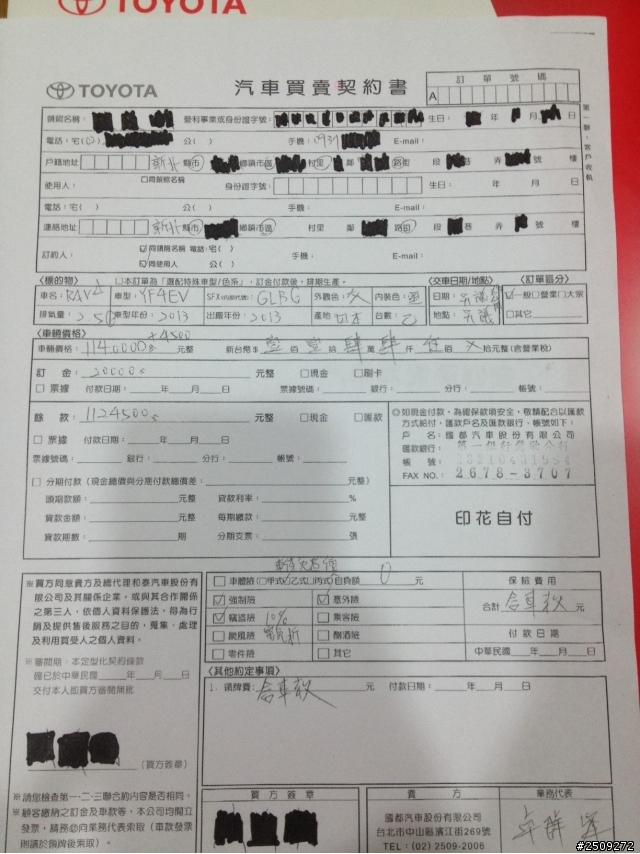 TOYOTA
TOYOTA 汽車買賣契約書 訂單號碼
A
第一聯:客戶收執
領照名稱: 營利事業或身份證字號: 生日: 年 月 日
電話:宅( ) 公( ) 手機: E-mail:
戶籍地址 新北 縣市 鄉鎮市區 村里 鄰 路街 段 巷 弄 號 樓
使用人: □同領照名稱 身份證字號: 生日: 年 月 日
電話:宅( ) 公( ) 手機: E-mail:
連絡地址 新北 縣市 鄉鎮市區 村里 鄰 路街 段 巷 弄 號 樓
訂約人: ☑同領照名稱 電話:宅( ) 公( ) 手機: E-mail:
☑同使用人
〈標的物〉 □本訂單為「選配特殊車型/色系」,訂金付款後,排期生產。 〈交車日期/地點〉 〈訂單區分〉
車名:RAV4 車型:YF4EV SFX(內部代號): 外觀色: 內裝色: 日期: ☑一般□營業□大宗
排氣量: 車型年份:2013 出廠年份:2013 產地: 日本 台數: 乙 地點: □其它
〈車輛價格〉 +4500
車輛價格:1140000 元整 新台幣 壹 佰 壹 拾 肆 萬 肆 仟 佰 拾元整(含營業稅)
訂金: 20000 元整 □現金 □刷卡
□票據 付款日期: 年 月 日 票據號碼: 銀行: 分行: 帳號:
餘款: 1124500 元整 □現金 □匯款
□票據 付款日期: 年 月 日
票據號碼: 銀行: 分行: 帳號:
◎如現金付款,為確保款項安全,敬請配合以匯款
方式給付,匯款戶名及匯款銀行、帳號如下:
戶名:國都汽車股份有限公司
匯款銀行:
帳號:
FAX NO.: 2678-3707
□分期付款(現金總價與分期付款總價差: 元整)
頭期款額: 元整 貸款利率: %
貸款金額: 元整 每期繳款: 元整
貸款期數: 期 分期支票: 張
印花自付
※買方同意貴方及總代理和泰汽車股份有
限公司及其關係企業,或與其合作關係
之第三人,依個人資料保護法,得為行
銷及提供售後服務之目的,蒐集、處理
及利用買受人之個人資料。
※審閱期:本定型化契約條款
確已於中華民國 年 月 日
交付本人即買方審閱無訛
(買方簽章)
□車體險(□甲式□乙式□丙式)自負額 0 元 保險費用
☑強制險 ☑意外險 合計 含車款 元
☑竊盜險 10% □乘客險
□颱風險 □酗酒險 付款日期
□零件險 □其它 中華民國 年 月 日
〈其他約定事項〉
1. 領牌費: 含車款 元 付款日期: 年 月 日
※請您檢查第一、二、三聯合約內容是否相同。
※顧客繳納之訂金及車款等,本公司均開立
發票,請務必向業務代表索取(車款發票
則請於領牌後索取)。
買方簽章 賣方 業務代表
國都汽車股份有限公司
台北市中山區濱江街269號
TEL:(02) 2509-2006
#2509272